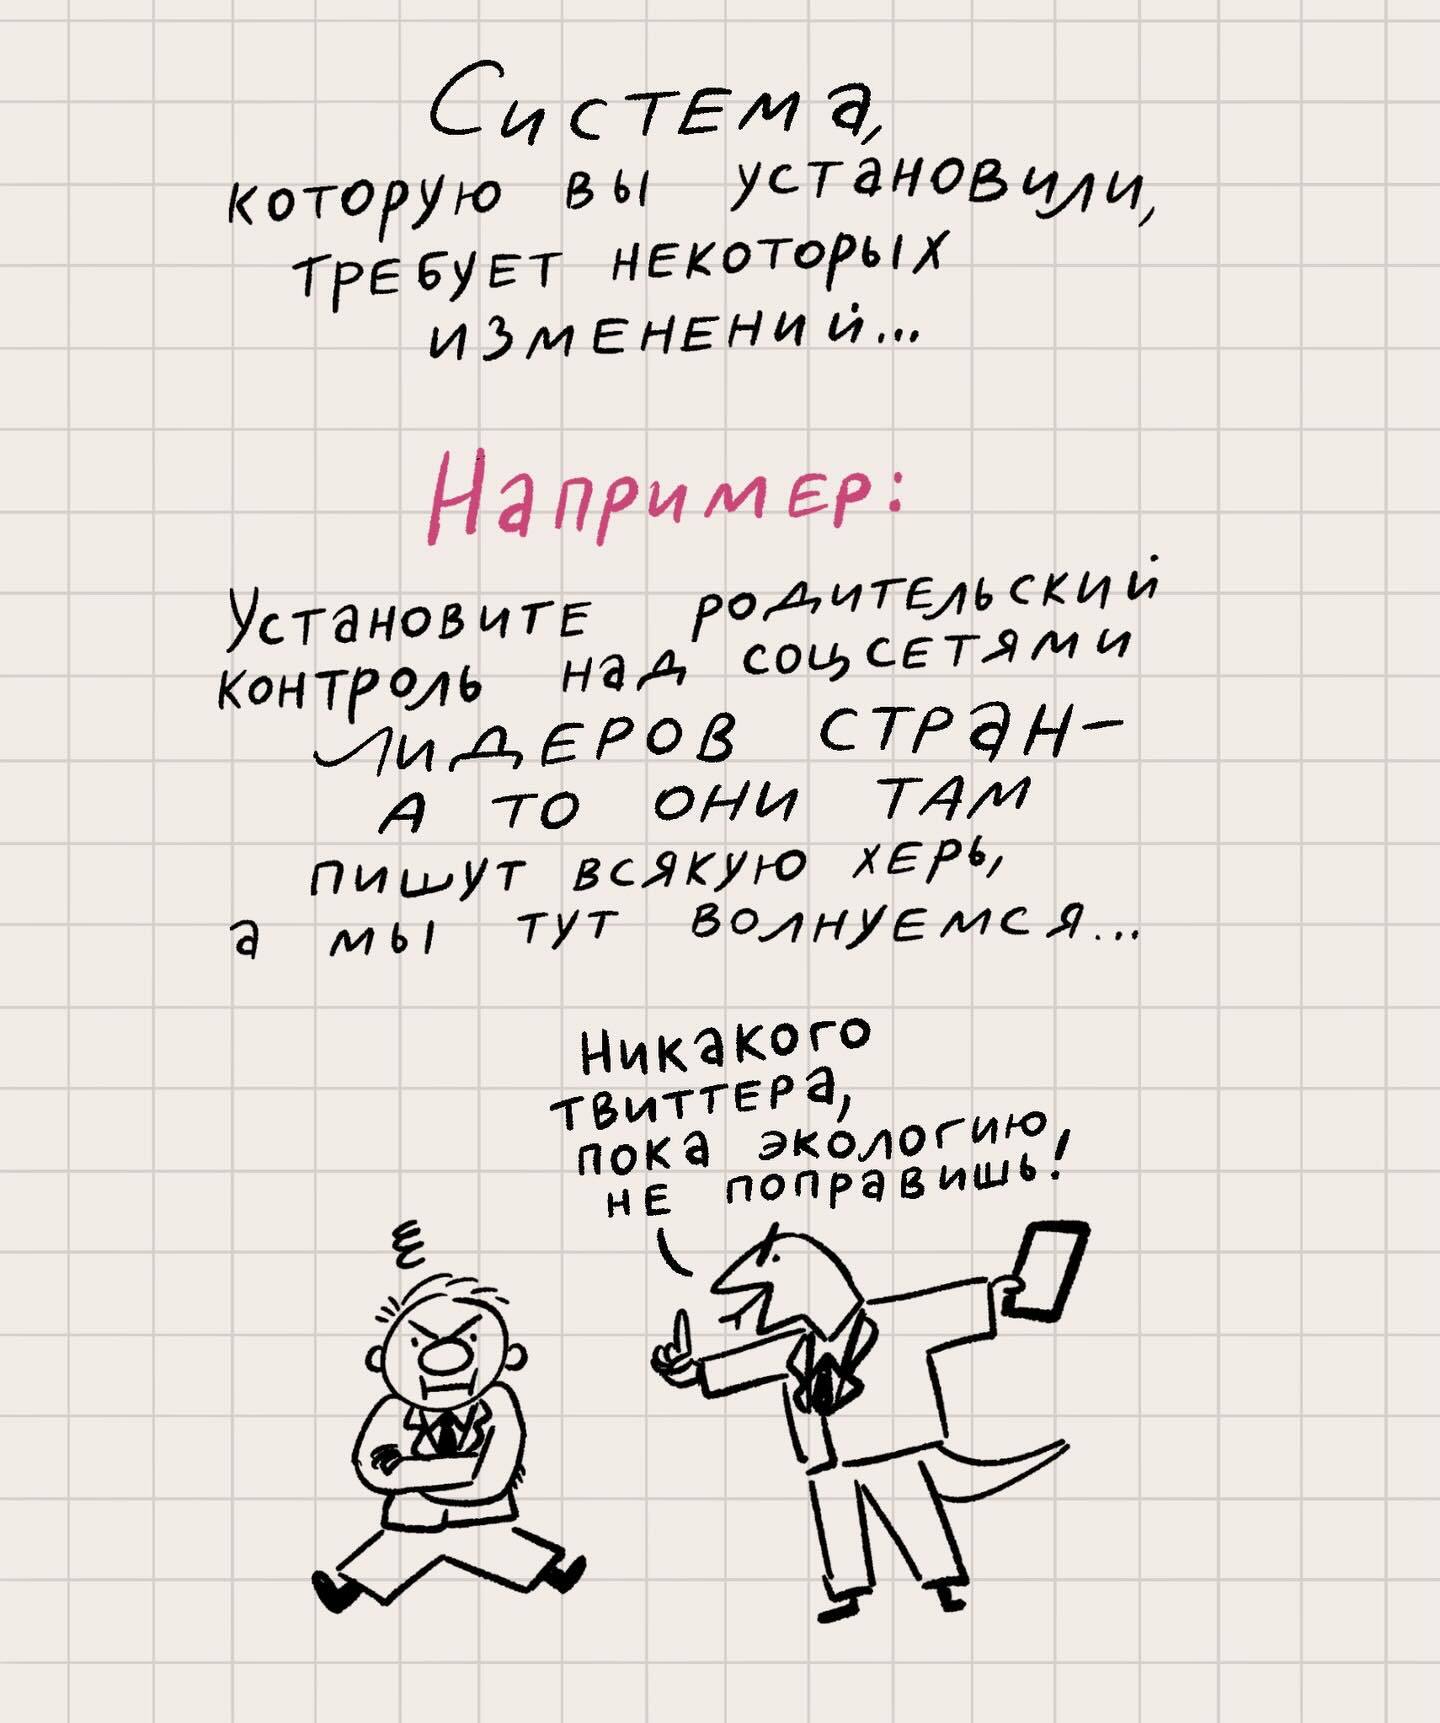 Система,
которую вы установили,
требует некоторых
изменений...
Например:
Установите родительский
контроль над соцсетями
лидеров стран-
а то они там
пишут всякую херь,
а мы тут волнуемся...
Никакого
твиттера,
пока экологию
не поправишь!